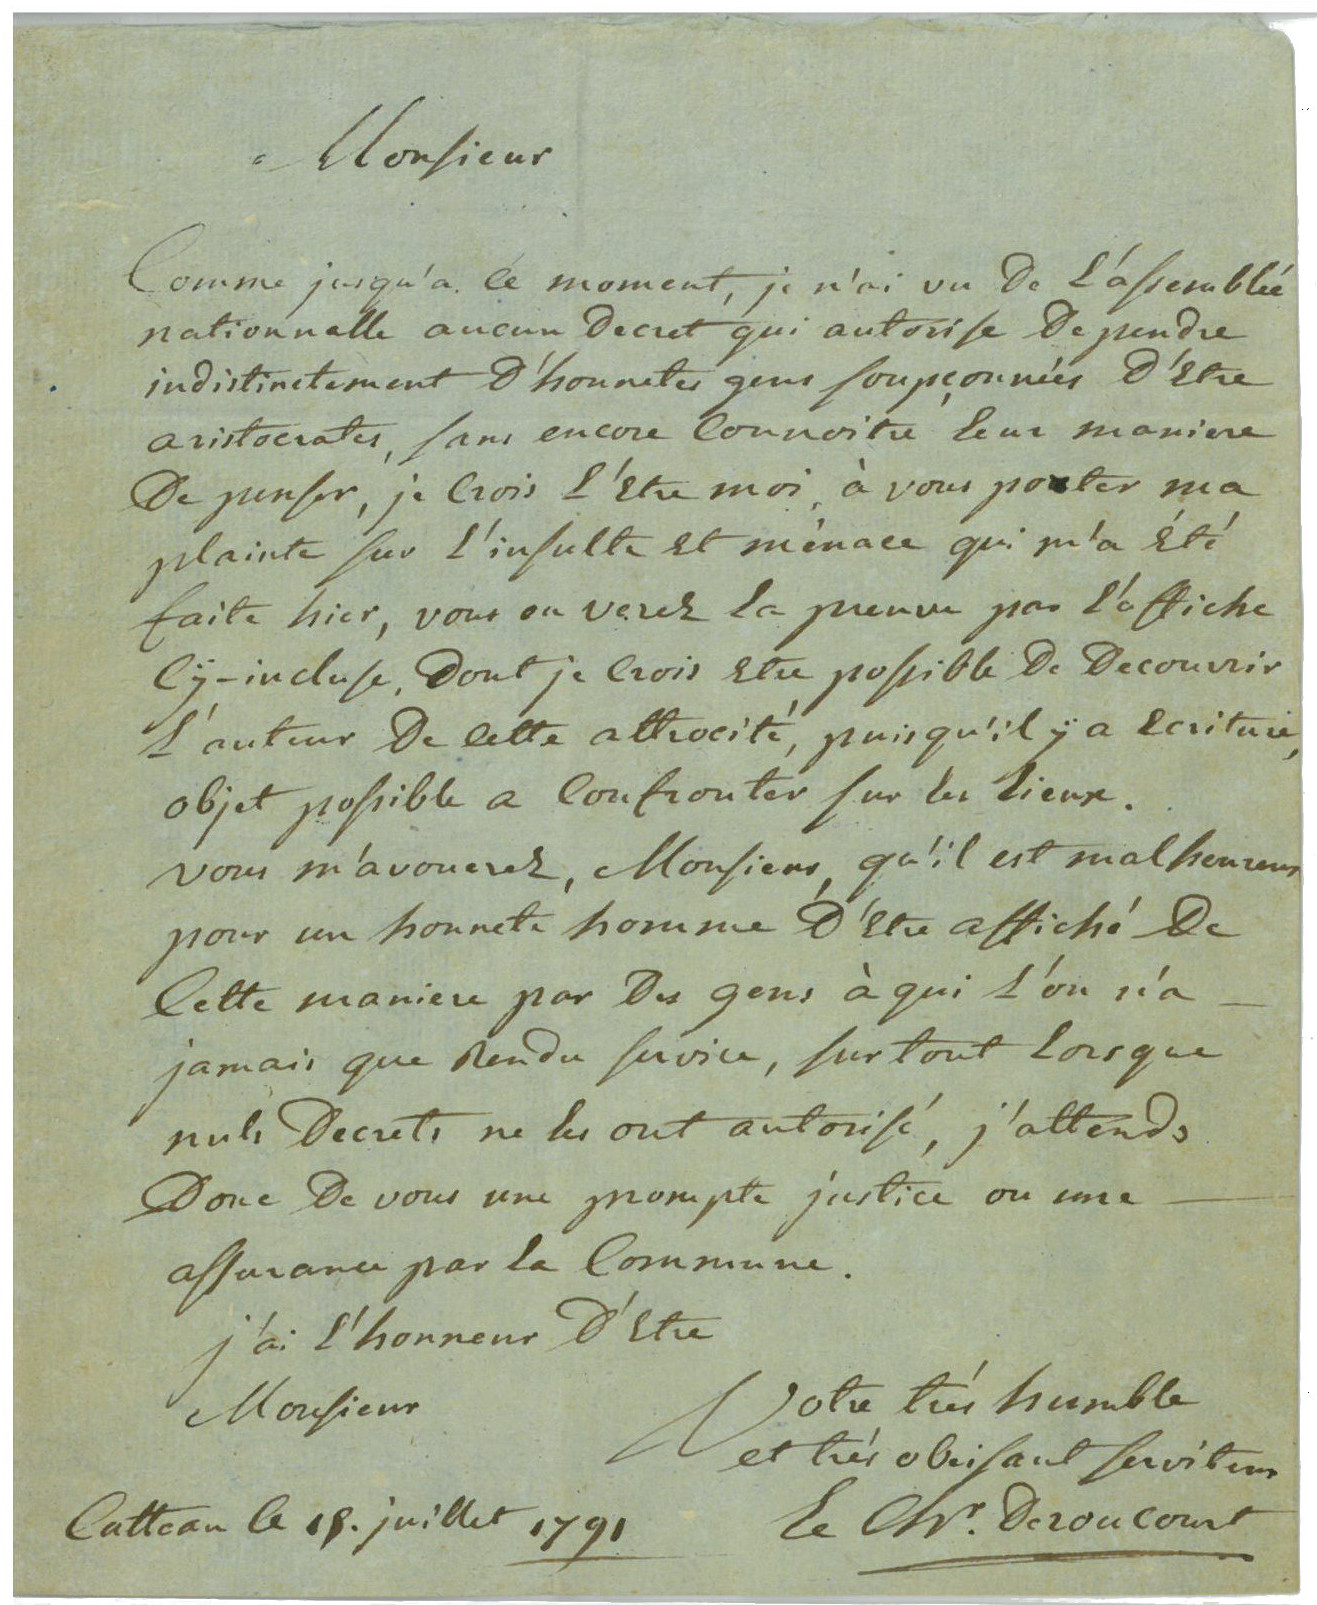 Monsieur
Comme jusqu'a ce moment, je n'ai vu De L'assemblée
nationnalle aucun Decret qui autorise De pendre
indistinctement D'honnetes gens soupçonnés D'Etre
aristocrates, sans encore Connoitre leur maniere
De penser, je Crois L'Etre moi, à vous porter ma
plainte sur L'insulte Et ménace qui m'a Été
faite hier, vous en verez La preuve par L'affiche
Cÿ-incluse, Dont je Crois Etre possible De Decouvrir
L'auteur De Cette attrocité, puisqu'il ÿ a Ecriture,
objet possible a Confronter sur les Lieux.
vous m'avouerez, Monsieur, qu'il est malheureux
pour un honnete homme D'Etre affiché De
Cette maniere par Des gens à qui L'on n'a
jamais que Rendu service, surtout Lorsque
nuls Decrets ne les ont autorisé, j'attends
Donc De vous une prompte justice ou une
assurance par La Commune.
j'ai L'honneur D'Etre
Monsieur
Votre très humble
et très obeisant serviteur
Le Chr. Deroucourt
Catteau le juillet 1791